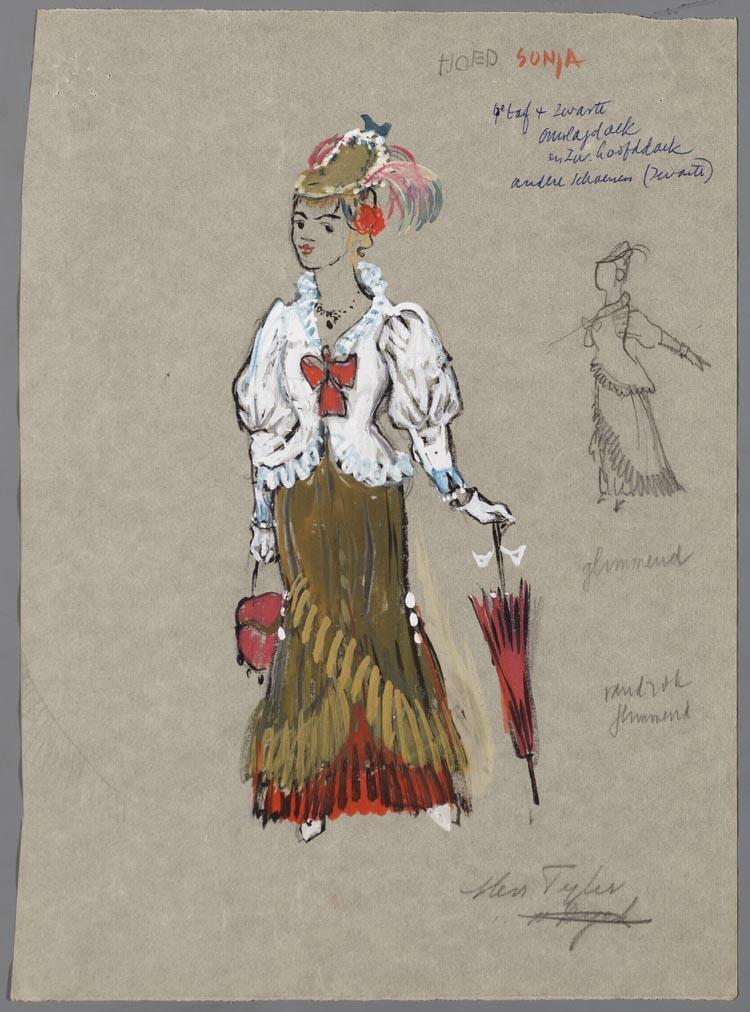 HOED SONJA
+ zwarte
omslagdoek
en zw. hoofddoek
andere schoenen (zwarte)
glimmend
rand rok
glimmend
Tyler